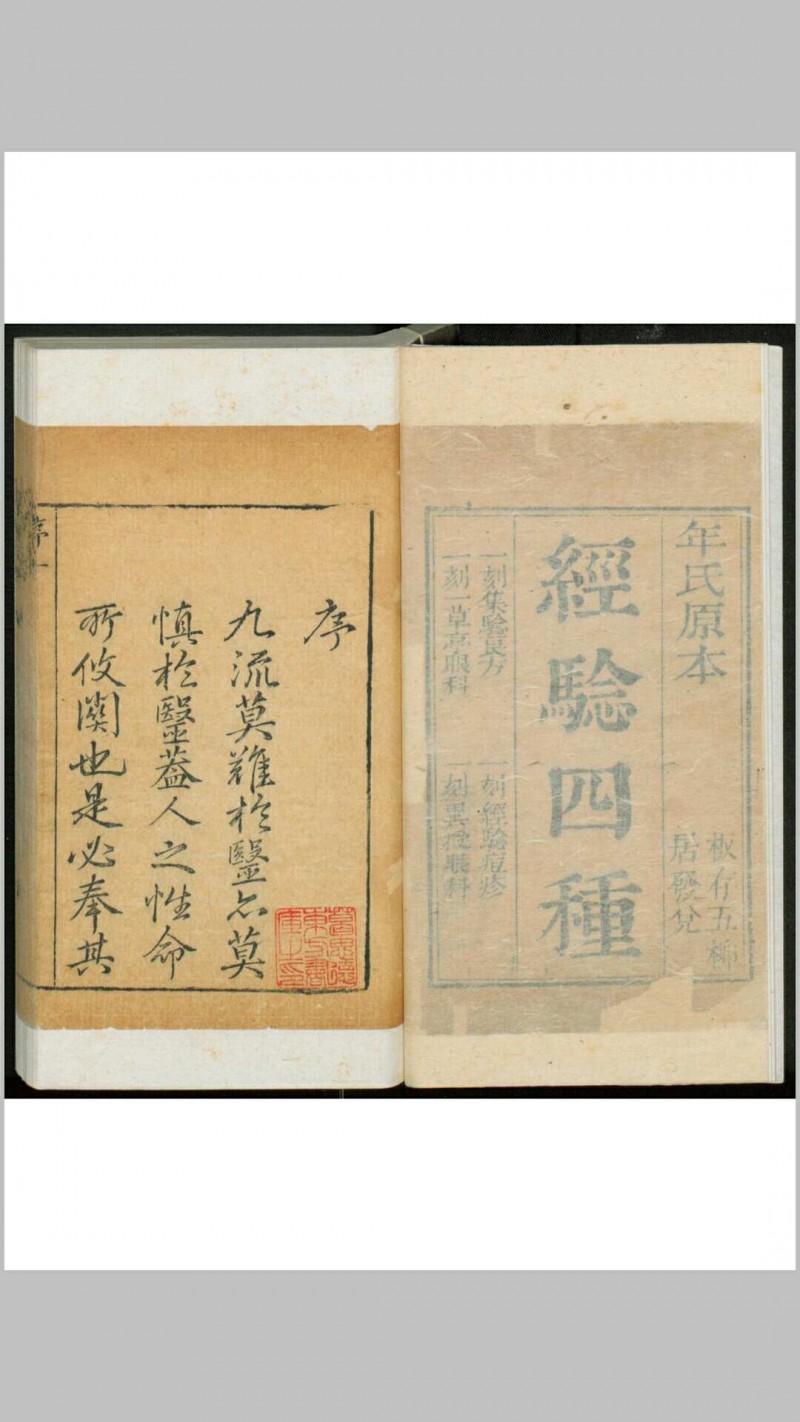 年氏原本
經驗四種
板存五柳
居發兌
一刻集驗良方
一刻經驗痘疹
一刻一草亭眼科
一刻異授眼科
序
九流莫難於醫亦莫
慎於醫葢人之性命
所攸関也是必奉其
序
一
葛思德
東方書
庫之印